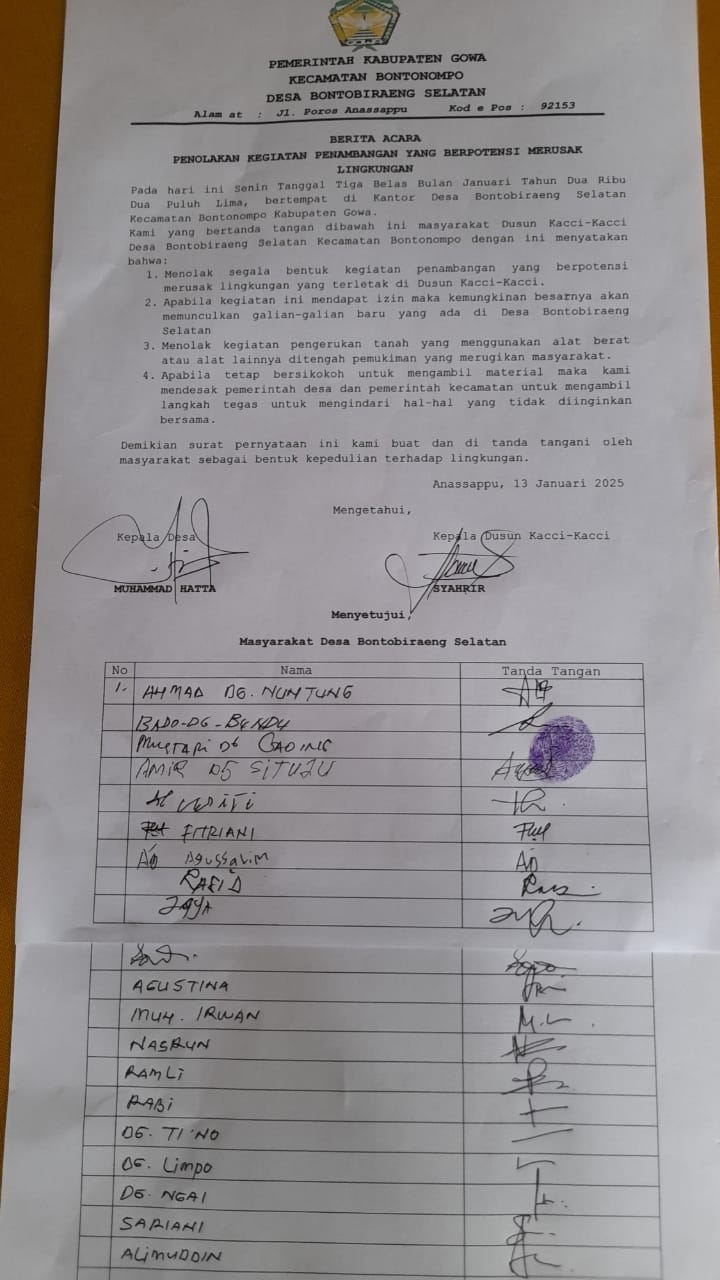 PEMERINTAH KABUPATEN GOWA
KECAMATAN BONTONOMPO
DESA BONTOBIRAENG SELATAN
Alam at : Jl. Poros Anassappu Kod e Pos : 92153
BERITA ACARA
PENOLAKAN KEGIATAN PENAMBANGAN YANG BERPOTENSI MERUSAK
LINGKUNGAN
Pada hari ini Senin Tanggal Tiga Belas Bulan Januari Tahun Dua Ribu
Dua Puluh Lima, bertempat di Kantor Desa Bontobiraeng Selatan
Kecamatan Bontonompo Kabupaten Gowa.
Kami yang bertanda tangan dibawah ini masyarakat Dusun Kacci-Kacci
Desa Bontobiraeng Selatan Kecamatan Bontonompo dengan ini menyatakan
bahwa:
1. Menolak segala bentuk kegiatan penambangan yang berpotensi
merusak lingkungan yang terletak di Dusun Kacci-Kacci.
2. Apabila kegiatan ini mendapat izin maka kemungkinan besarnya akan
memunculkan galian-galian baru yang ada di Desa Bontobiraeng
Selatan
3. Menolak kegiatan pengerukan tanah yang menggunakan alat berat
atau alat lainnya ditengah pemukiman yang merugikan masyarakat.
4. Apabila tetap bersikokoh untuk mengambil material maka kami
mendesak pemerintah desa dan pemerintah kecamatan untuk mengambil
langkah tegas untuk mengindari hal-hal yang tidak diinginkan
bersama.
Demikian surat pernyataan ini kami buat dan di tanda tangani oleh
masyarakat sebagai bentuk kepedulian terhadap lingkungan.
Anassappu, 13 Januari 2025
Mengetahui,
Kepala Desa Kepala Dusun Kacci-Kacci
MUHAMMAD HATTA SYAHRIR
Menyetujui,
Masyarakat Desa Bontobiraeng Selatan
No Nama Tanda Tangan
1. AHMAD DG. NUNTUNG
BADO-DG-BUNDU
MUSTARI DG GADING
AMIR DG SITUJU
FITRIANI
Agussalim
RAFID
JAYA
AGUSTINA
MUH. IRWAN
NASRUN
RAMLI
RABI
DG. TI'NO
DG. Limpo
DG. NGAI
SARIANI
ALIMUDDIN